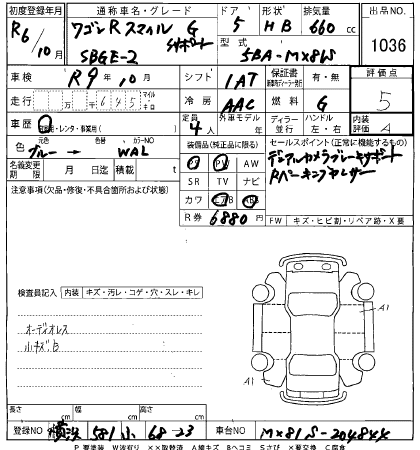 初度登録年月 通称車名・グレード ドア 形状 排気量 出品NO.
R6/10月 ワゴンR スマイル G 5 HB 660cc 1036
SBGE-2 型式 5BA-MX81S
車検 R9年10月 シフト 1AT 保証書 有・無 評価点
走行 万 千 645 マイル キロ 冷房 AAC 燃料 G 5
車歴 レンタ・事業用 定員 4人 外車モデル 年 ディーラー 並行 ハンドル 左・右 内装評価 A
色 元色 ブルー→ 色替 カラーNO WAL 装備品(純正品に限る) セールスポイント(正常に機能するもの)
名義変更期限 月 日迄 積載 t PS PW AW デュアルカメラブレーキサポート
注意事項(欠品・修復・不具合箇所および状態) SR TV ナビ Rパーキングセンサー
カワ エアB ABS
R券 6880円 FW キズ・ヒビ割・リペア跡・X要
検査員記入 内装 キズ・汚レ・コゲ・穴・スレ・キレ
A1
オーディオレス
小キズ
A1
長さ cm 幅 cm 高さ cm
登録NO 横浜 581 車台NO MX81S-2048XX
P要塗装 W波有り XX取替済 A線キズ Bヘコミ Sさび X要交換 C腐食